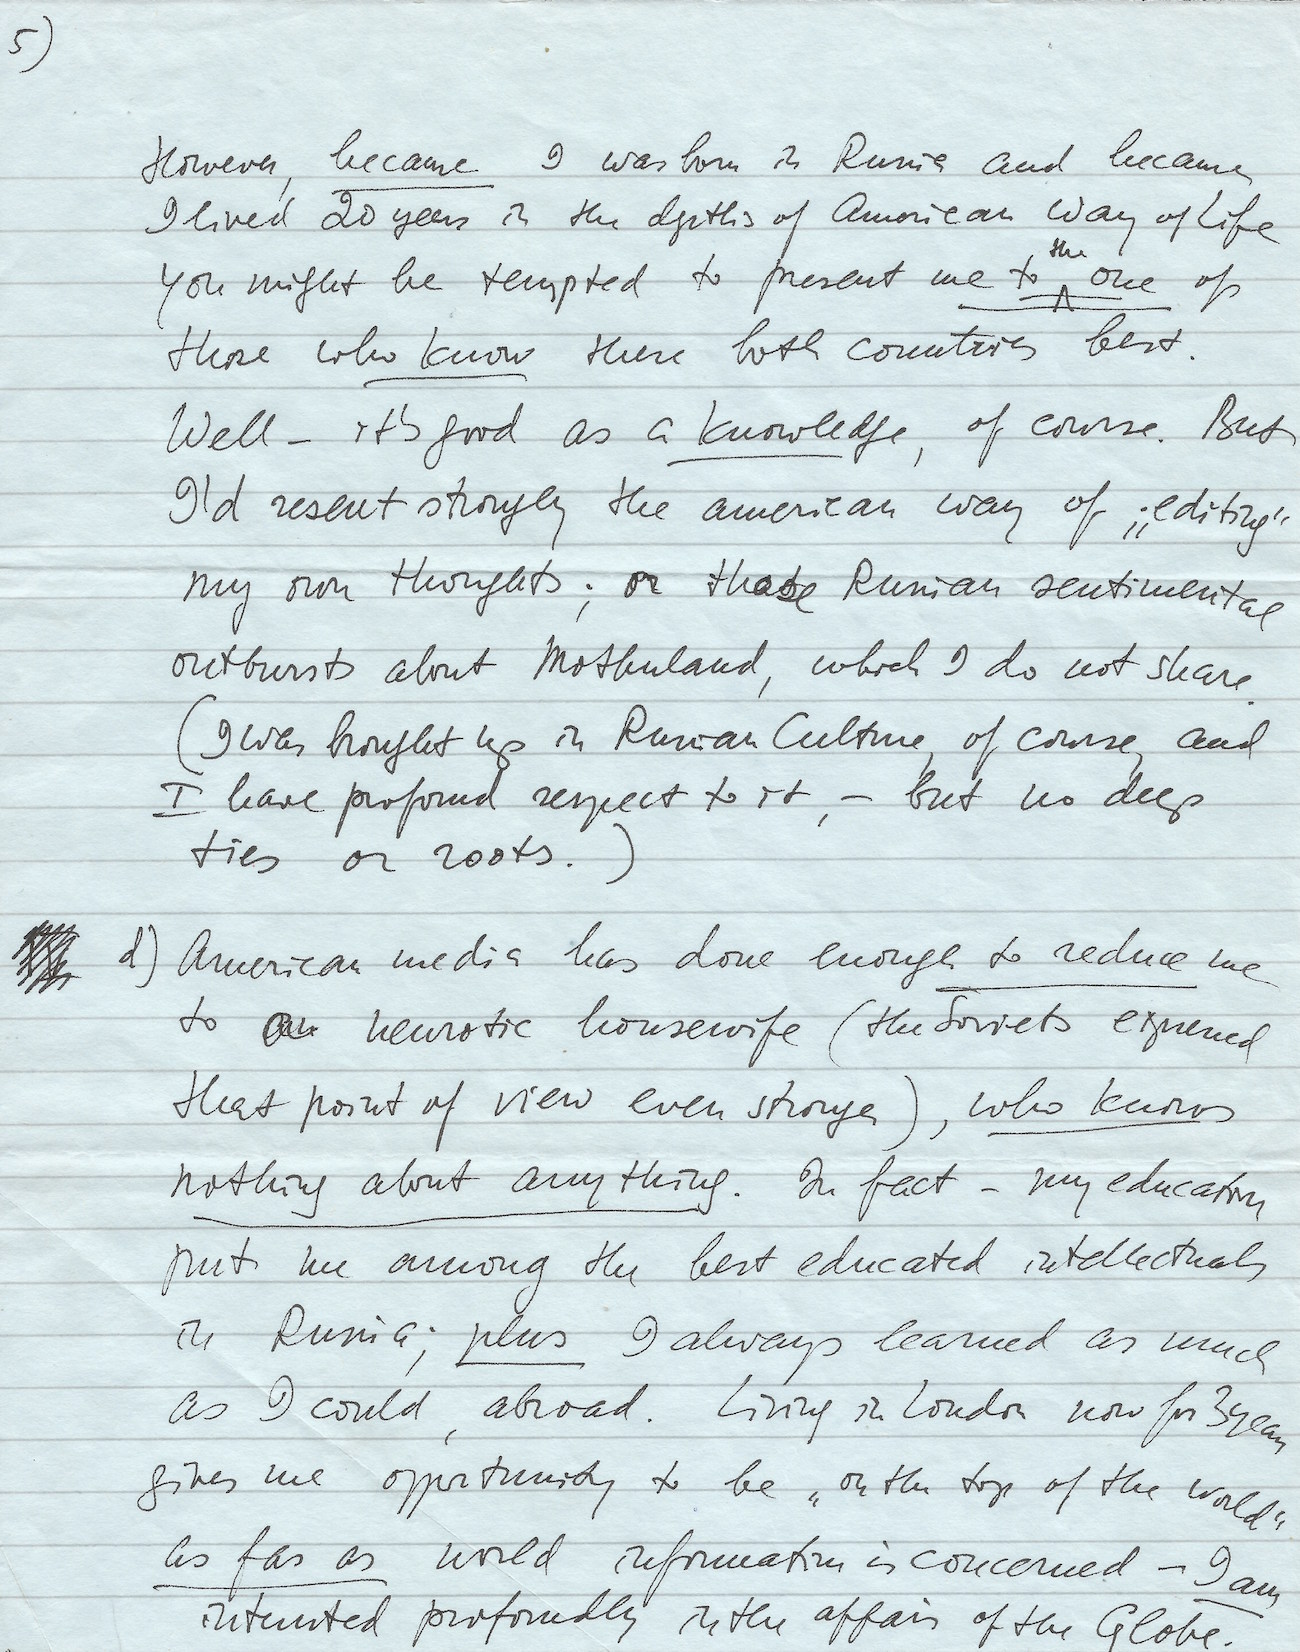 5)
However, because I was born in Russia and because
I lived 20 years in the depths of American Way of Life
you might be tempted to present me to the one of
those who know these both countries best.
Well – it's good as a knowledge, of course. But
I'd resent strongly the american way of „editing"
my own thoughts; or those Russian sentimental
outbursts about Motherland, which I do not share.
(I was brought up in Russian Culture, of course, and
I have profound respect to it, – but no deep
ties or roots.)
d) American media has done enough to reduce me
to a neurotic housewife (the Soviets expressed
that point of view even stronger), who knows
nothing about anything. In fact – my education
puts me among the best educated intellectuals
in Russia; plus I always learned as much
as I could, abroad. Living in London now for 3 years
gives me opportunity to be „on the top of the world"
as far as world information is concerned – I am
interested profoundly in the affairs of the Globe.